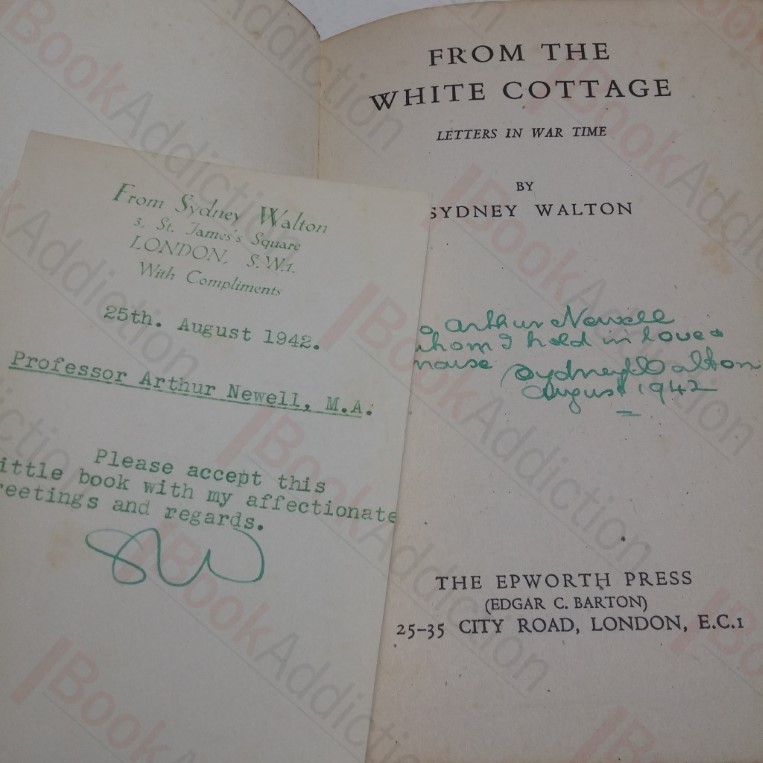 From Sydney Walton
3, St. James's Square
LONDON, S.W.1.
With Compliments
25th. August 1942.
Professor Arthur Newell, M.A.
Please accept this
ittle book with my affectionate
reetings and regards.
SW
FROM THE
WHITE COTTAGE
LETTERS IN WAR TIME
BY
SYDNEY WALTON
o Arthur Newell
whom I hold in love &
Sydney Walton
August 1942
THE EPWORTH PRESS
(EDGAR C. BARTON)
25-35 CITY ROAD, LONDON, E.C.1
BookAddiction